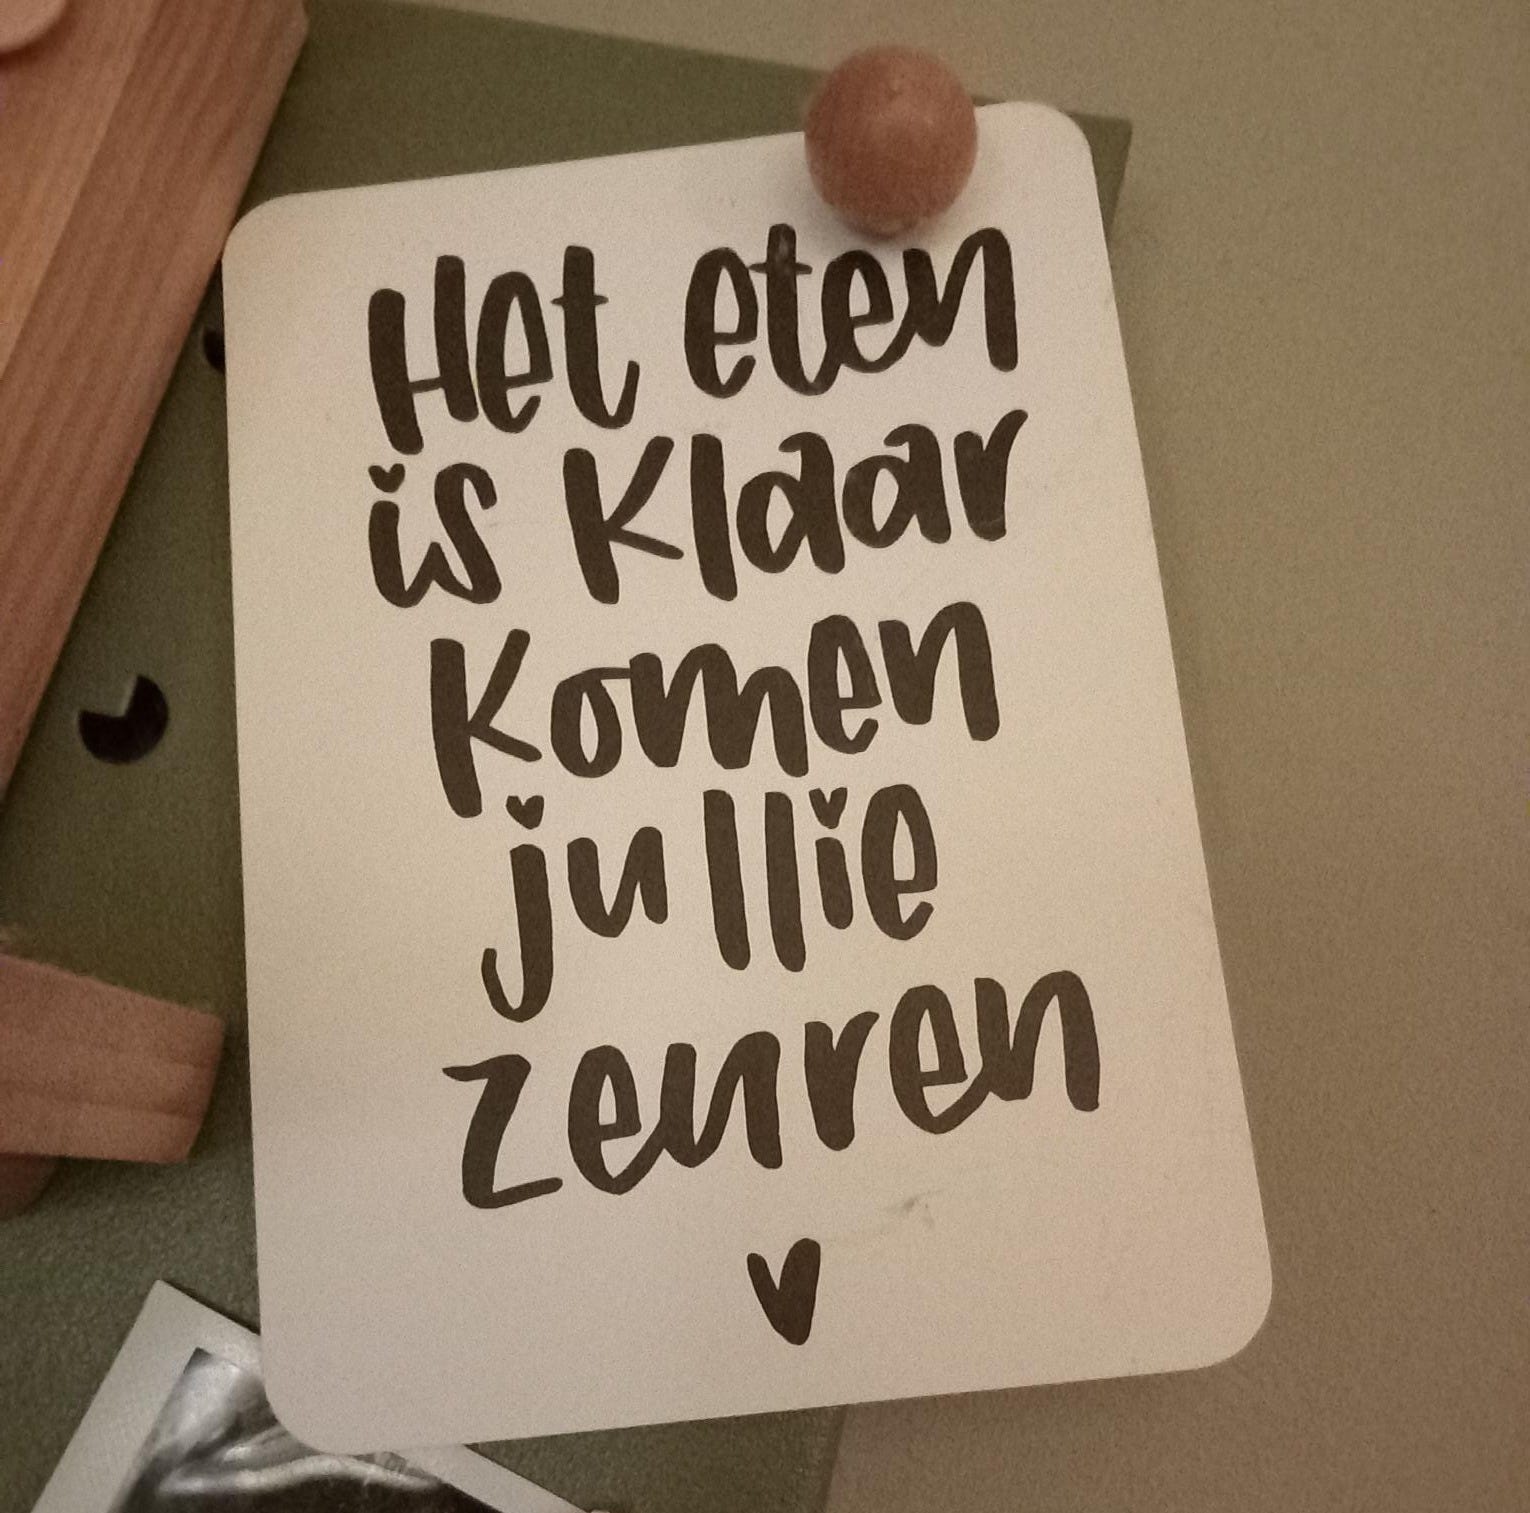 Het eten
is Klaar
Komen
jullie
zeuren